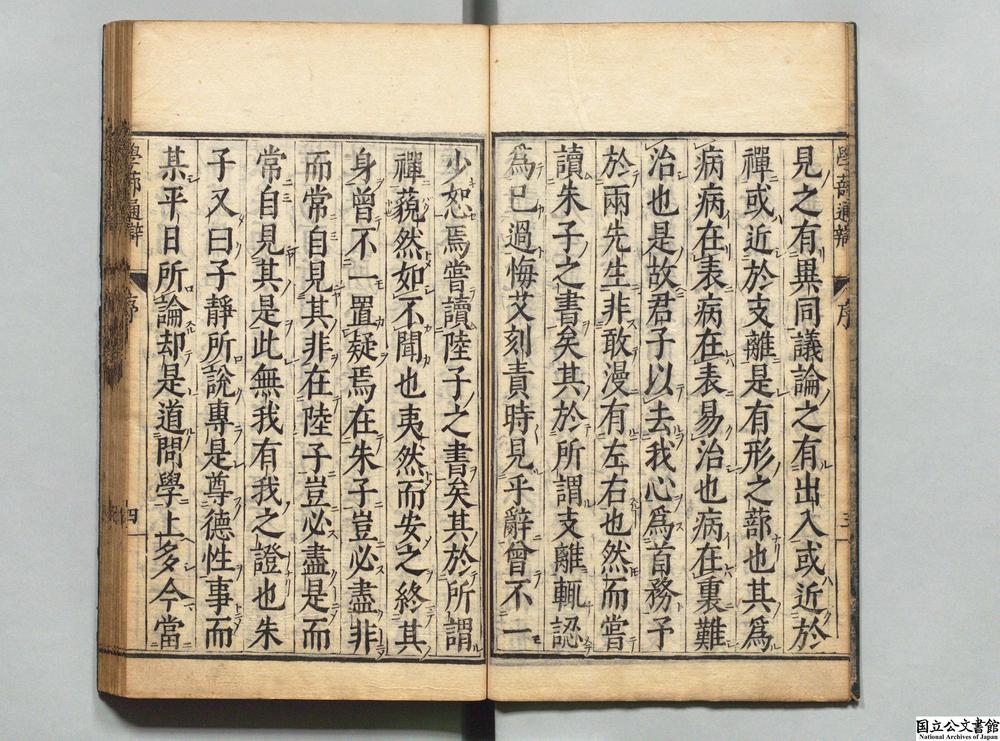 學蔀通辯 序 三
見之有異同議論之有出入或近於
禪或近於支離是有形之蔀也其為
病病在表病在表易治也病在裏難
治也是故君子以去我心為首務予
於兩先生非敢漫有左右也然而嘗
讀朱子之書矣其於所謂支離輒認
為已過悔艾刻責時見乎辭曾不一
少恕焉嘗讀陸子之書矣其於所謂
禪藐然如不聞也夷然而安之終其
身曾不一置疑焉在朱子豈必盡非
而常自見其非在陸子豈必盡是而
常自見其是此無我有我之證也朱
子又曰子靜所說專是尊德性事而
某平日所論却是道問學上多今當
學蔀通辯 序 四
国立公文書館
National Archives of Japan